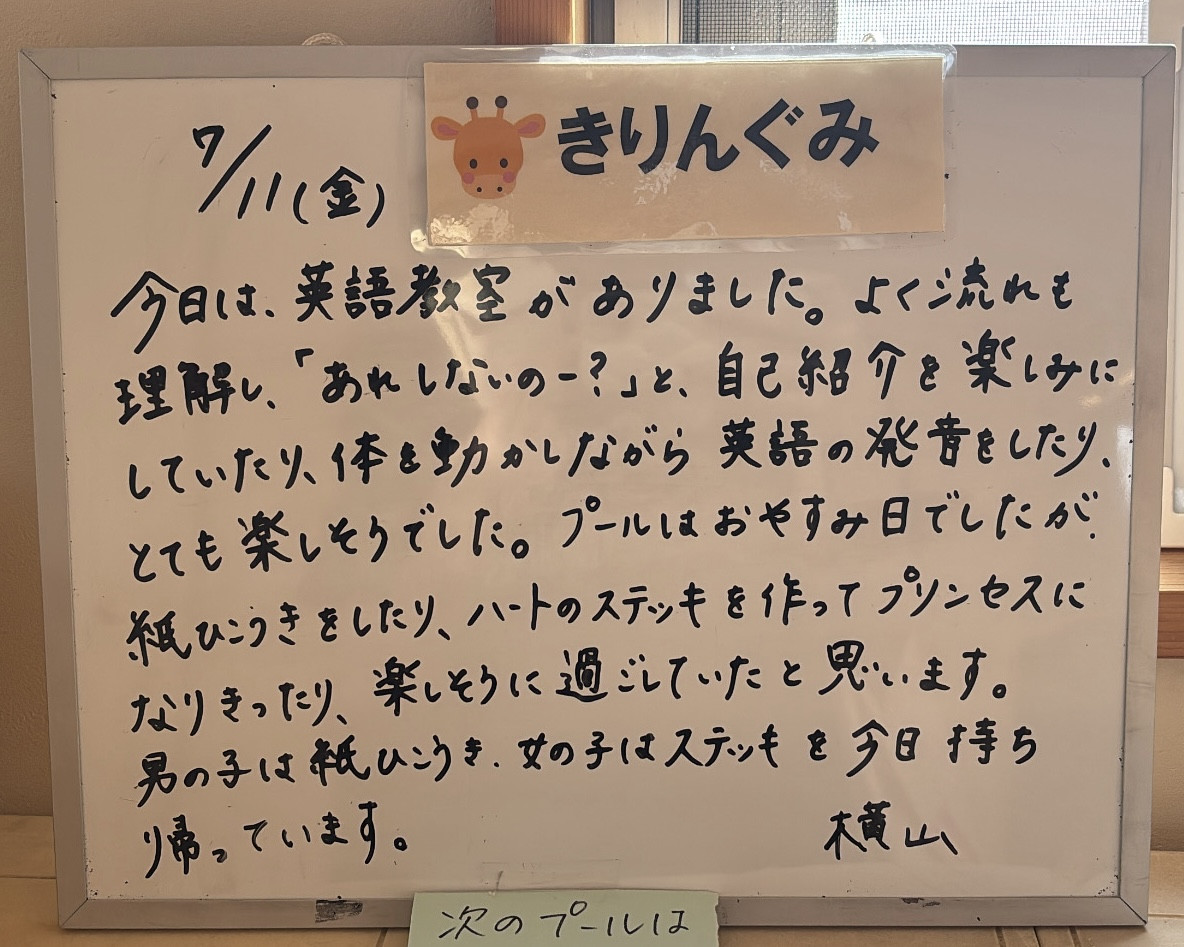 きりんぐみ
7/11(金)
今日は、英語教室がありました。よく流れも
理解し、「あれしないのー?」と、自己紹介を楽しみに
していたり、体を動かしながら英語の発音をしたり、
とても楽しそうでした。プールはおやすみ日でしたが、
紙ひこうきをしたり、ハートのステッキを作ってプリンセスに
なりきったり、楽しそうに過ごしていたと思います。
男の子は紙ひこうき、女の子はステッキを今日持ち
帰っています。
横山
次のプールは